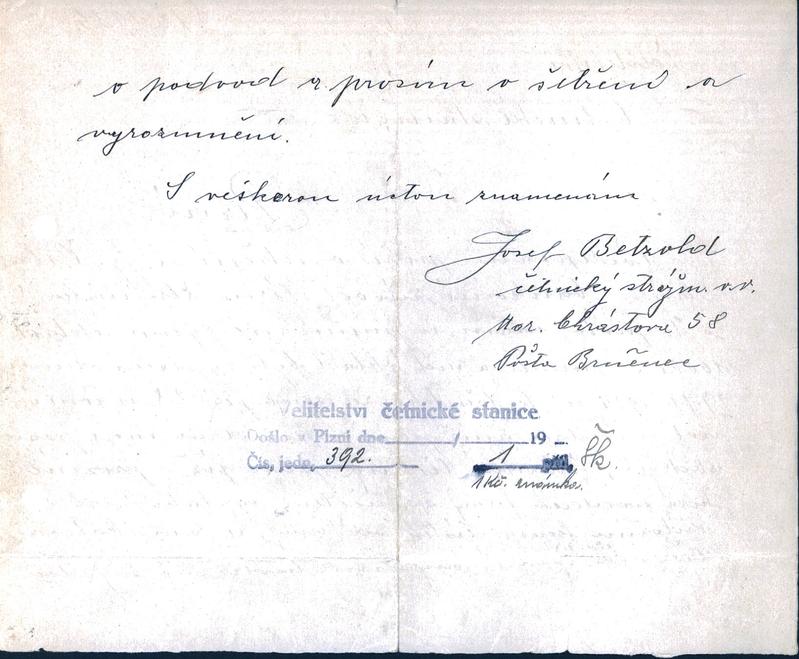 o podvod a prosím o šetření a
vyrozumnění.
S veškerou úctou znamenám
Josef Betzold
četnický strážm. v.v.
Mor. Chrástova 58
Pošta Brněnec
Velitelství četnické stanice
Došlo v Plzni dne / 19
Čís. jedn. 392.
1 příl. Šk.
1 Kč. známka.